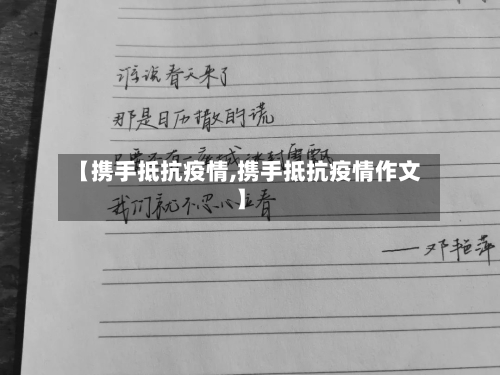 谁说春天来了
那是日历撒的谎
只要还有一座城
【携手抵抗疫情,携手抵抗疫情作文
】
我们就不忍心立春
——邓艳萍